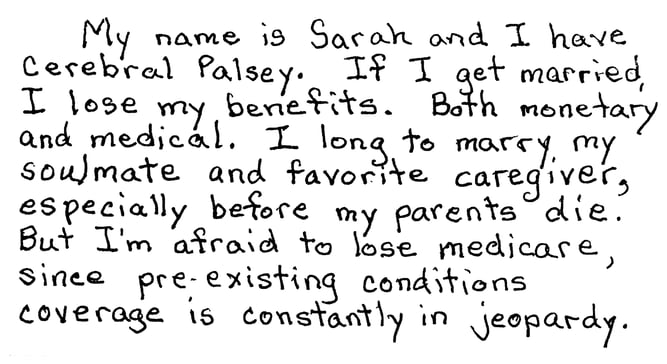 My name is Sarah and I have
Cerebral Palsey. If I get married,
I lose my benefits. Both monetary
and medical. I long to marry my
soulmate and favorite caregiver,
especially before my parents die.
But I'm afraid to lose medicare,
since pre-existing conditions
coverage is constantly in jeopardy.